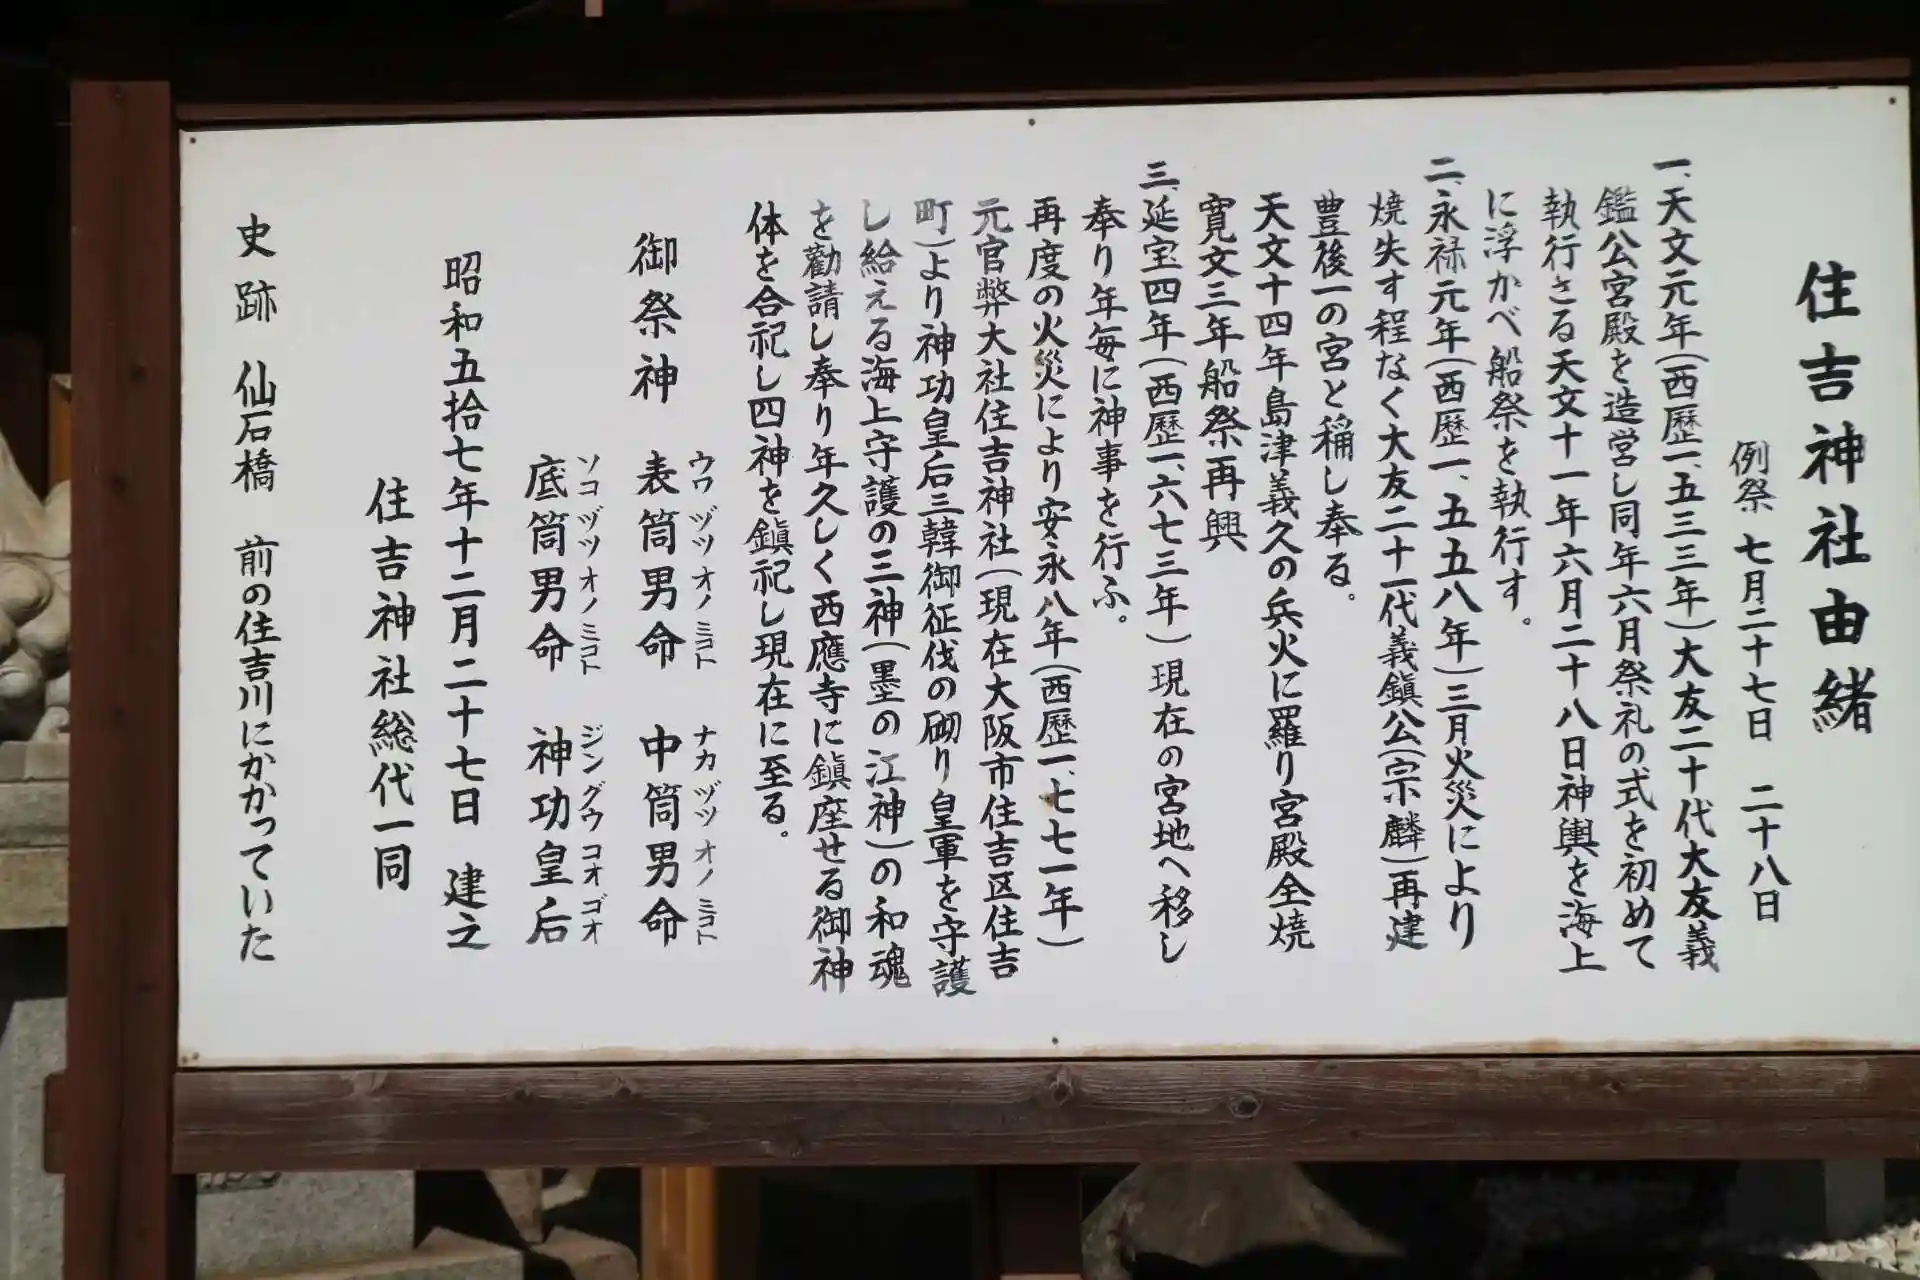 住吉神社由緒
例祭 七月二十七日 二十八日
一、天文元年(西歴一、五三三年)大友二十代大友義
鑑公宮殿を造営し同年六月祭礼の式を初めて
執行さる天文十一年六月二十八日神輿を海上
に浮かべ船祭を執行す。
二、永禄元年(西歴一、五五八年)三月火災により
焼失す程なく大友二十一代義鎭公(宗麟)再建
豊後一の宮と稱し奉る。
天文十四年島津義久の兵火に羅り宮殿全焼
寛文三年船祭再興
三、延宝四年(西歴一、六七三年)現在の宮地へ移し
奉り年毎に神事を行ふ。
再度の火災により安永八年(西歴一、七七一年)
元官弊大社住吉神社(現在大阪市住吉区住吉
町)より神功皇后三韓御征伐の砌り皇軍を守護
し給える海上守護の三神(墨の江神)の和魂
を勸請し奉り年久しく西應寺に鎭座せる御神
体を合祀し四神を鎭祀し現在に至る。
御祭神 表筒男命 中筒男命
ウワヅツオノミコト ナカヅツオノミコト
底筒男命 神功皇后
ソコヅツオノミコト ジングウコオゴオ
昭和五拾七年十二月二十七日 建之
住吉神社総代一同
史跡 仙石橋 前の住吉川にかかっていた